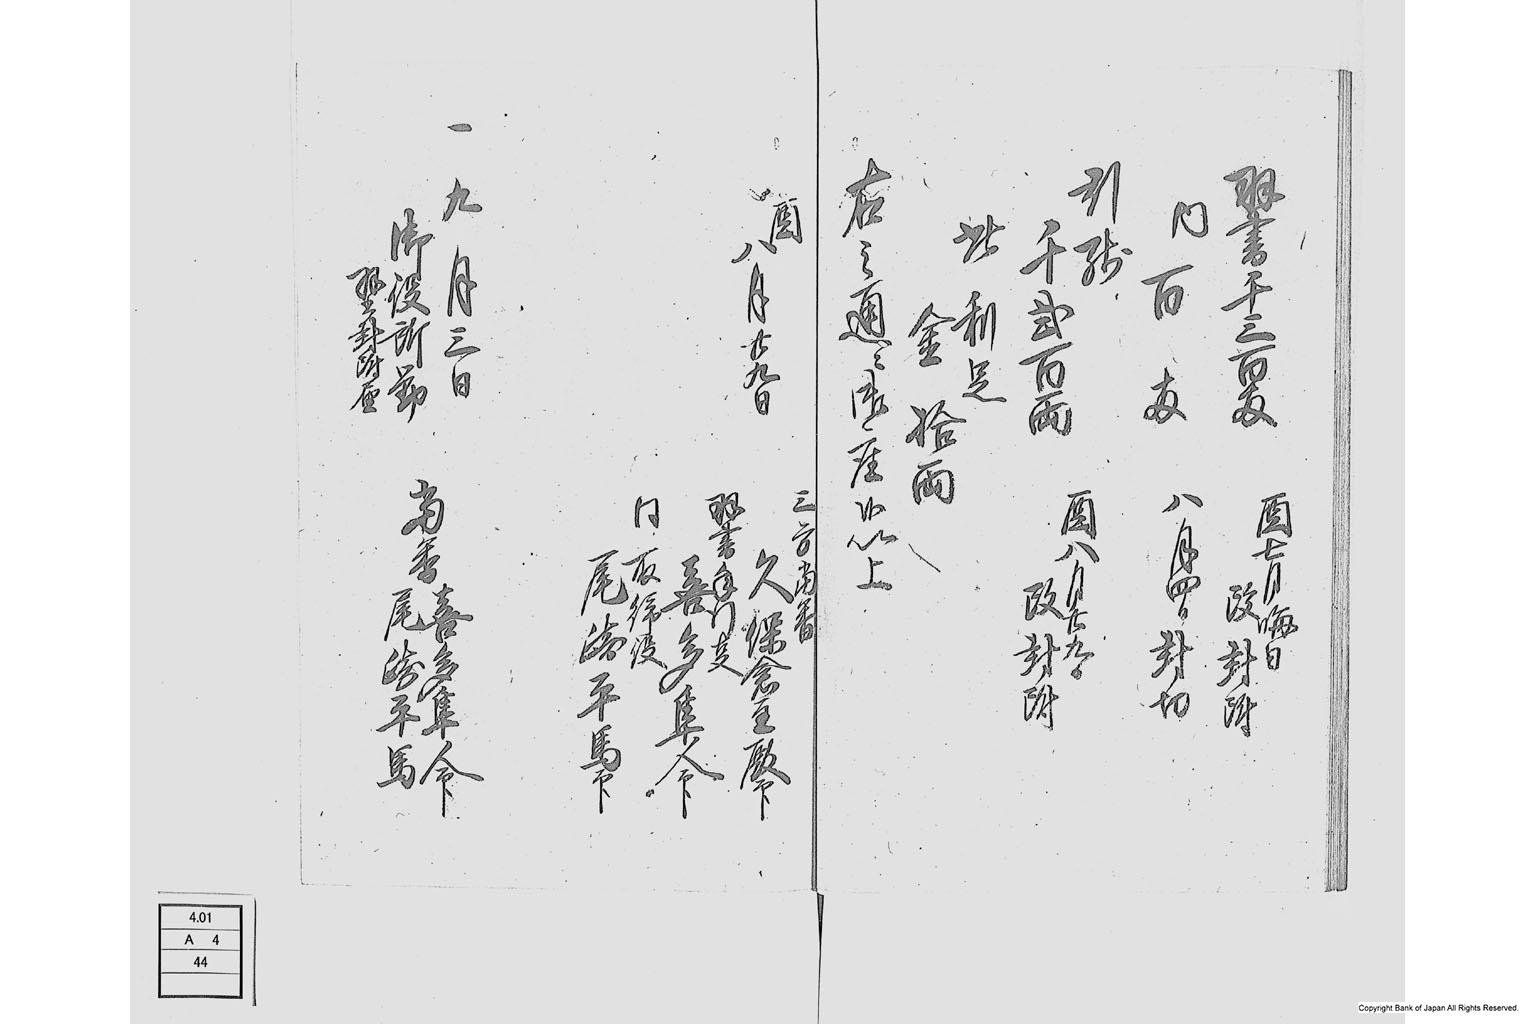 書千三百両
内
百両
引残
千弐百両
此利足
金拾両
右之通ニ御座候以上
酉七月晦日
改封附
八月四日
封切
酉八月廿九日
改封附
酉
八月廿九日
三方当番
久保倉主殿 印
喜多隼人 印
同取締役
尾崎平馬 印
一 九月三日
御役所勤
封附
当番
喜多隼人 印
尾崎平馬
4.01
A 4
44
Copyright Bank of Japan All Rights Reserved.